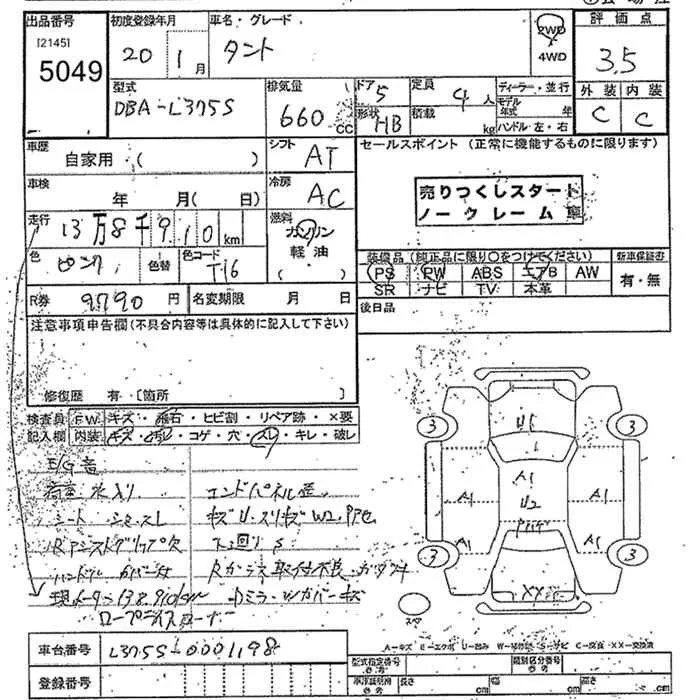 出品番号 初度登録年月 車名・グレード 評価点
[2145]
5049 20 1月 タント 2WD 4WD 3.5
型式 排気量 ドア 5 定員 4人 ディーラー・並行 外装 内装
DBA-L375S 660 CC 形状 HB 積載 kg モデル年式 年 ハンドル 左・右 C C
車歴 自家用 ( ) シフト AT セールスポイント (正常に機能するものに限ります)
車検 年 月( 日) 冷房 AC
売りつくしスタート
ノークレーム車
走行 13万8千910km 燃料 ガソリン 軽油 ( )
色 ピンク 色替 色コード T16
装備品(純正品に限り〇をつけてください) 新車保証書
PS PW ABS エアB AW 有・無
SR ナビ TV 本革
R券 9790円 名変期限 月 日 後日品
注意事項申告欄(不具合内容等は具体的に記入して下さい)
修復歴 有 〔箇所 〕
検査員 FW キズ・飛石・ヒビ割・リペア跡・×要
記入欄 内装 キズ・汚れ・コゲ・穴・スレ・キレ・破レ
E/G音
荷室水入り エンドパネル歪
シートシミ、スレ キズU、スリキズW2、Pアセ
Rアシストグリップ欠 下廻りS
ハンドルカバー
現メーター138,910km
ロープライスコーナー
U1
A1
U2
A1 A1
A1 A1
XX
3 3
3 3
スペア
A-キズ E-エクボ U-凹み W-補修跡 S-サビ C-腐食 XX-交換済
車台番号 L375S-0001198
型式指定番号 類別区分番号
登録番号 長さ cm 幅 cm 高さ cm